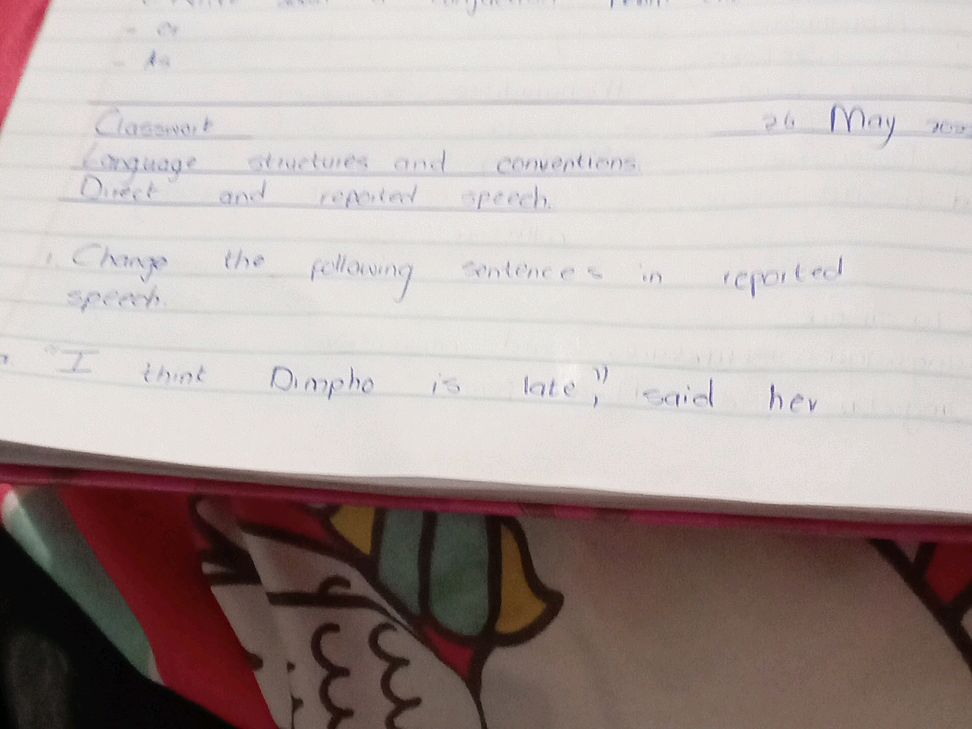 - Or
- As
Classwork 26 May
Language structures and conventions.
Direct and reported speech.
1. Change the following sentences in reported
speech.
"I think Dimpho is late," said her